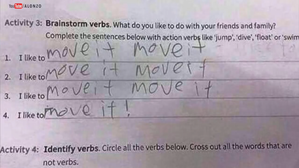 YouTube ALONZO
Activity 3: Brainstorm verbs. What do you like to do with your friends and family?
Complete the sentences below with action verbs like 'jump', 'dive', 'float' or 'swim
1. I like to move it move it
2. I like to move it move it
3. I like to move it move it
4. I like to move it!
Activity 4: Identify verbs. Circle all the verbs below. Cross out all the words that are
not verbs.